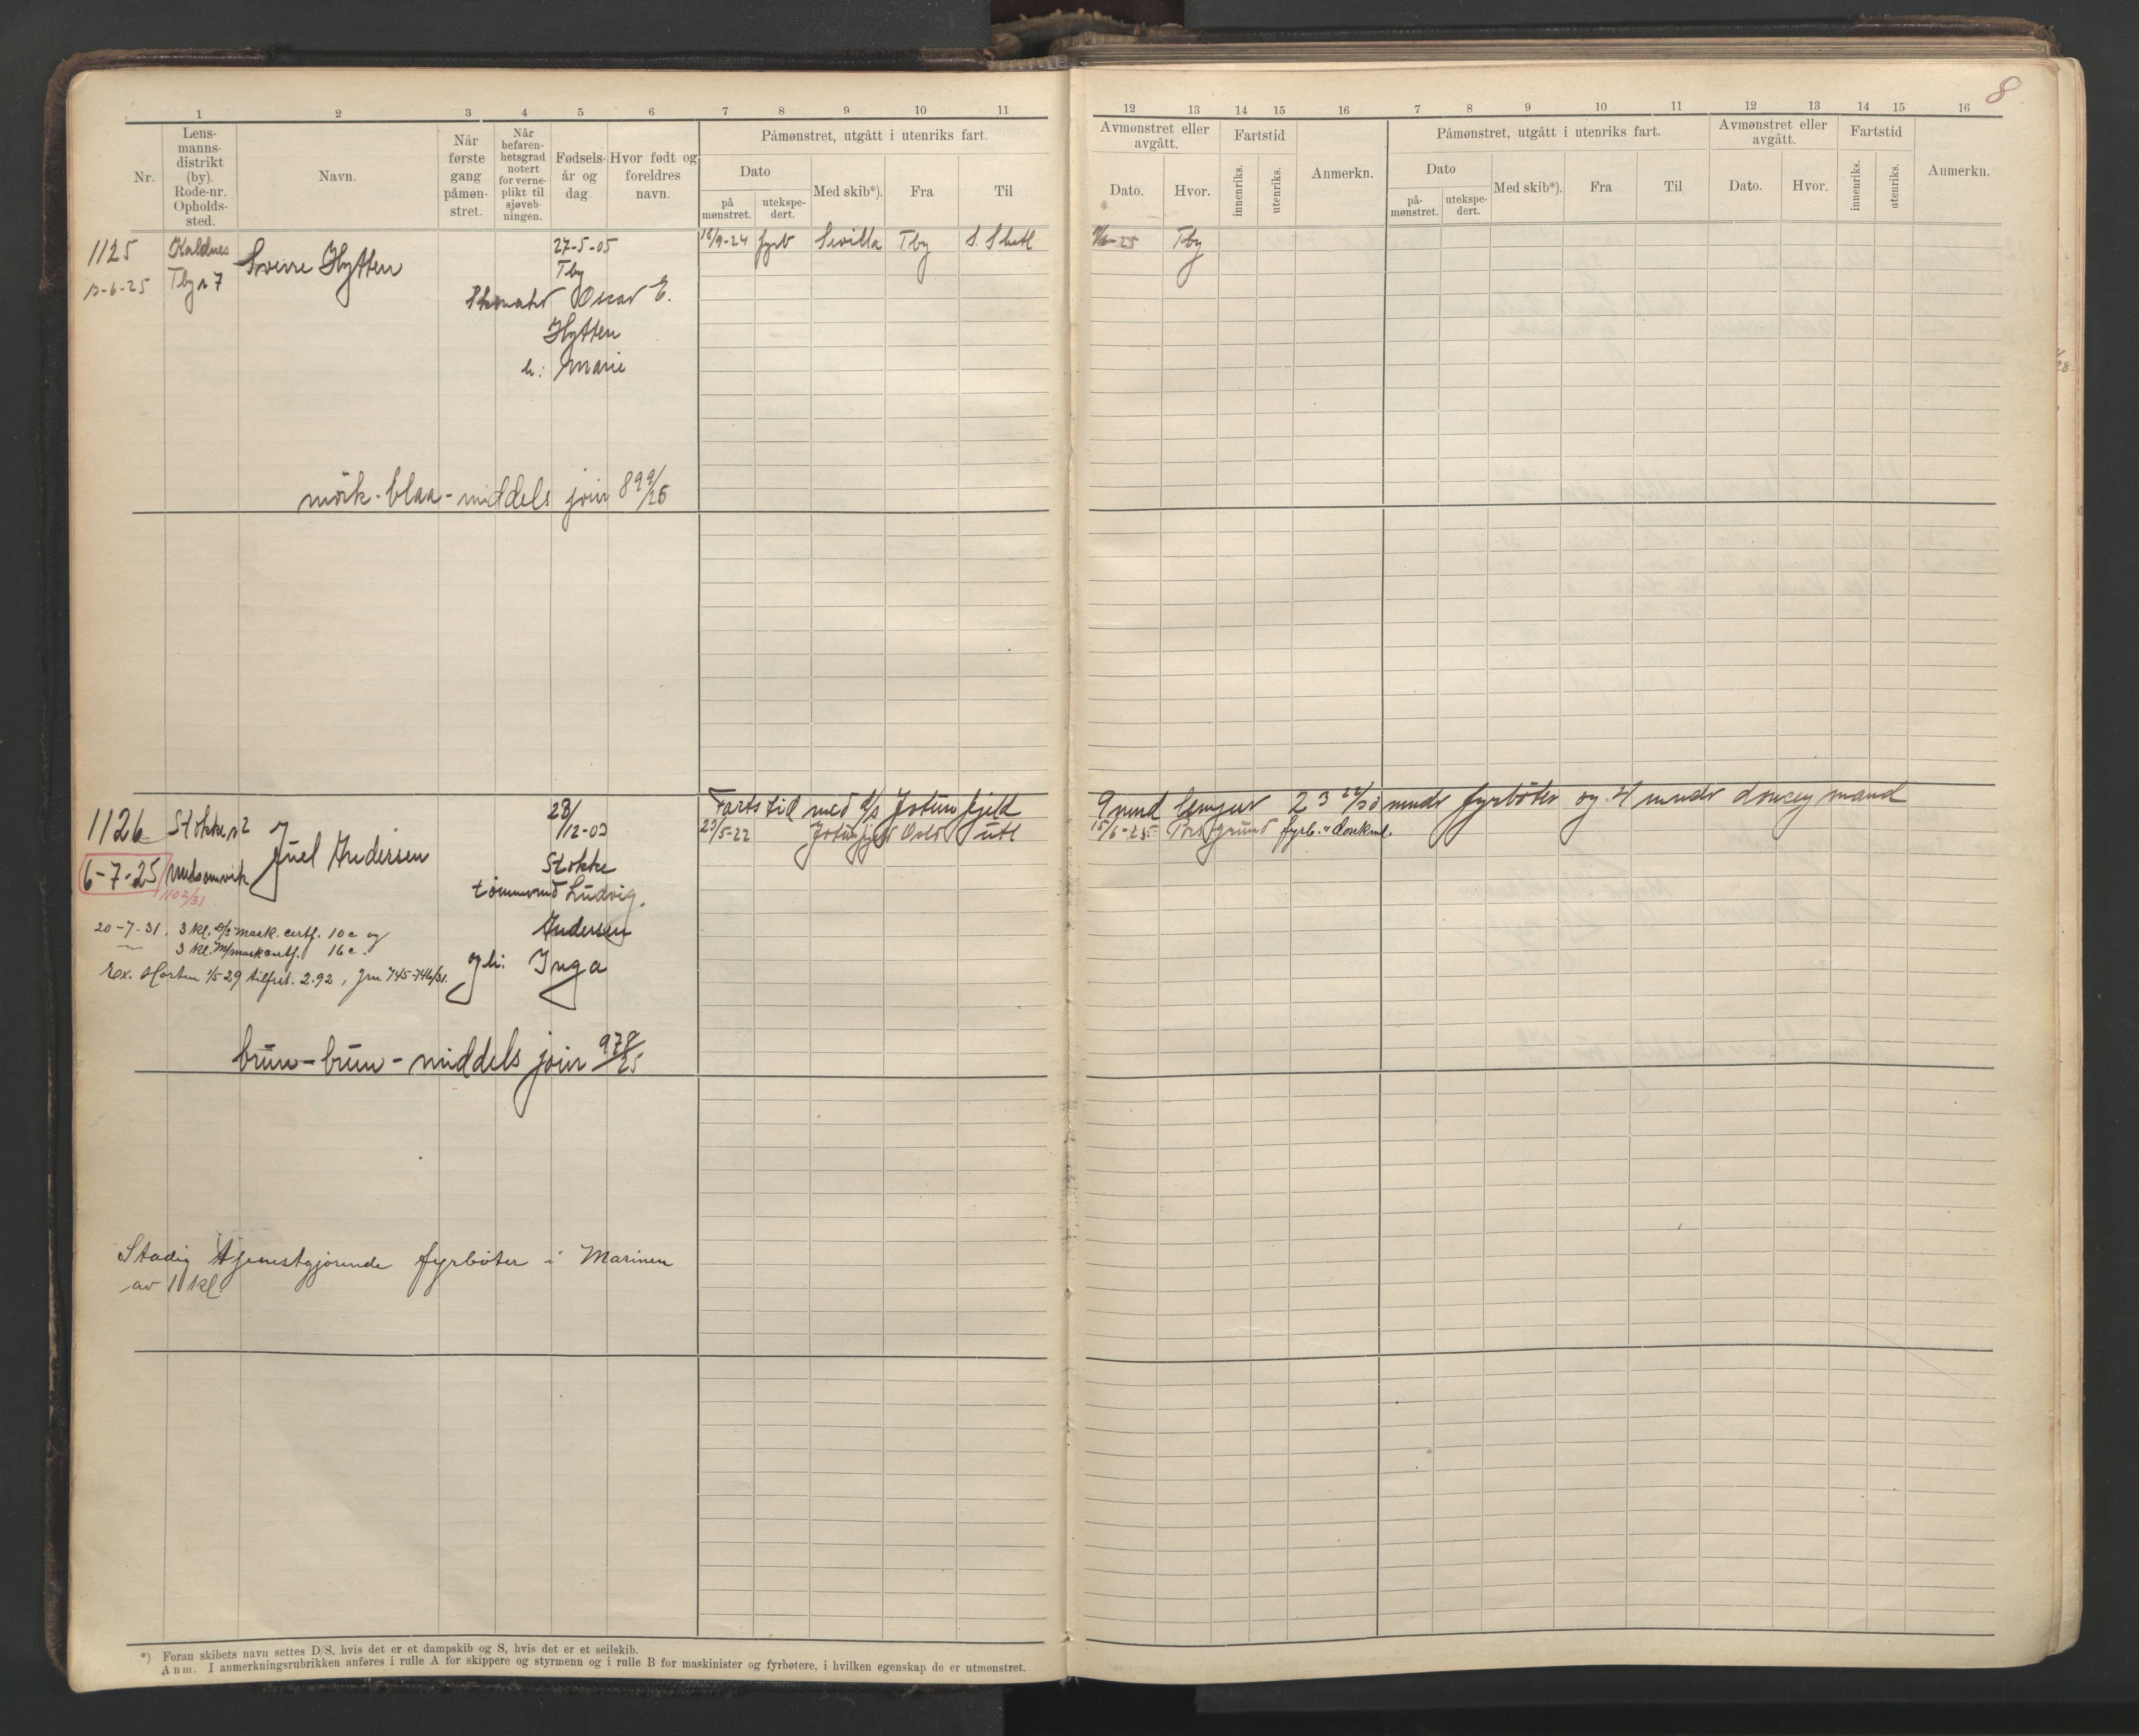 8
1 2 3 4 5 6 7 8 9 10 11
12 13 14 15 16 7 8 9 10 11 12 13 14 15 16
Nr.
Lens-
manns-
distrikt
(by).
Rode-nr.
Opholds-
sted.
Navn.
Når
første
gang
påmøn-
stret.
Når
befaren-
hetsgrad
notert
for verne-
plikt til
sjøveb-
ningen.
Fødsels-
år og
dag.
Hvor født og
foreldres
navn.
Påmønstret, utgått i utenriks fart.
Dato
på
mønstret.
utekspe-
dert.
Med skib*).
Fra
Til
Avmønstret eller
avgått.
Dato.
Hvor.
Fartstid
innenriks.
utenriks.
Anmerkn.
Påmønstret, utgått i utenriks fart.
Dato
på-
mønstret.
utekspe-
dert.
Med skib*).
Fra
Til
Avmønstret eller
avgått.
Dato.
Hvor.
Fartstid
innenriks.
utenriks.
Anmerkn.
1125 Kaldnes Sverre Hytten 27-5-05 18/9-24 fyrb Sevilla Tby S. Shetl Tby
-6-25 Tby r 7 Tby
Oscar E.
Hytten
h: Marie
mörk-blaa-middels jour 899/25
1126 Stokke r 2 Juel Andersen 23/12-03 Fartstid med d/s Jotunfjeld 9 mnd lengur 23 22/30 mndr fyrböter og 4 mndr donkey mand
23/5-22 Jotunfjeld Oslo utl 15/6-25 Porsgrund fyrb. & donkm.
6-7-25
1102/31
Stokke
tömmermd Ludvig
Andersen
og h: Inga
20-7-31. 3 kl. d/s mask. certf. 10c og
3 kl. M/mask certf. 16c.
Ex. Horten 1/5-29 tilfrst. 2.92, jnr 745-746/31.
brun-brun-middels jour 978/25
Stadig tjenestgjörende fyrböter i Marinen
av 1 kl.
*) Foran skibets navn settes D/S, hvis det er et dampskib og S, hvis det er et seilskib.
Anm. I anmerkningsrubrikken anføres i rulle A for skippere og styrmenn og i rulle B for maskinister og fyrbøtere, i hvilken egenskap de er utmønstret.